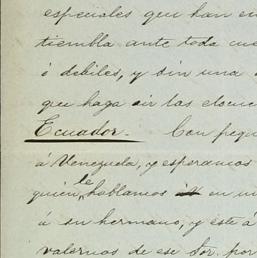 especuales que han en
tiembla ante toda cue
ó debiles, y sin una
que haga oir las elocue
Ecuador. Con pequ
á Venezuela, y esperamos
quien le hablamos en un
á su hermano, y éste á
valernos de ese Sor. por